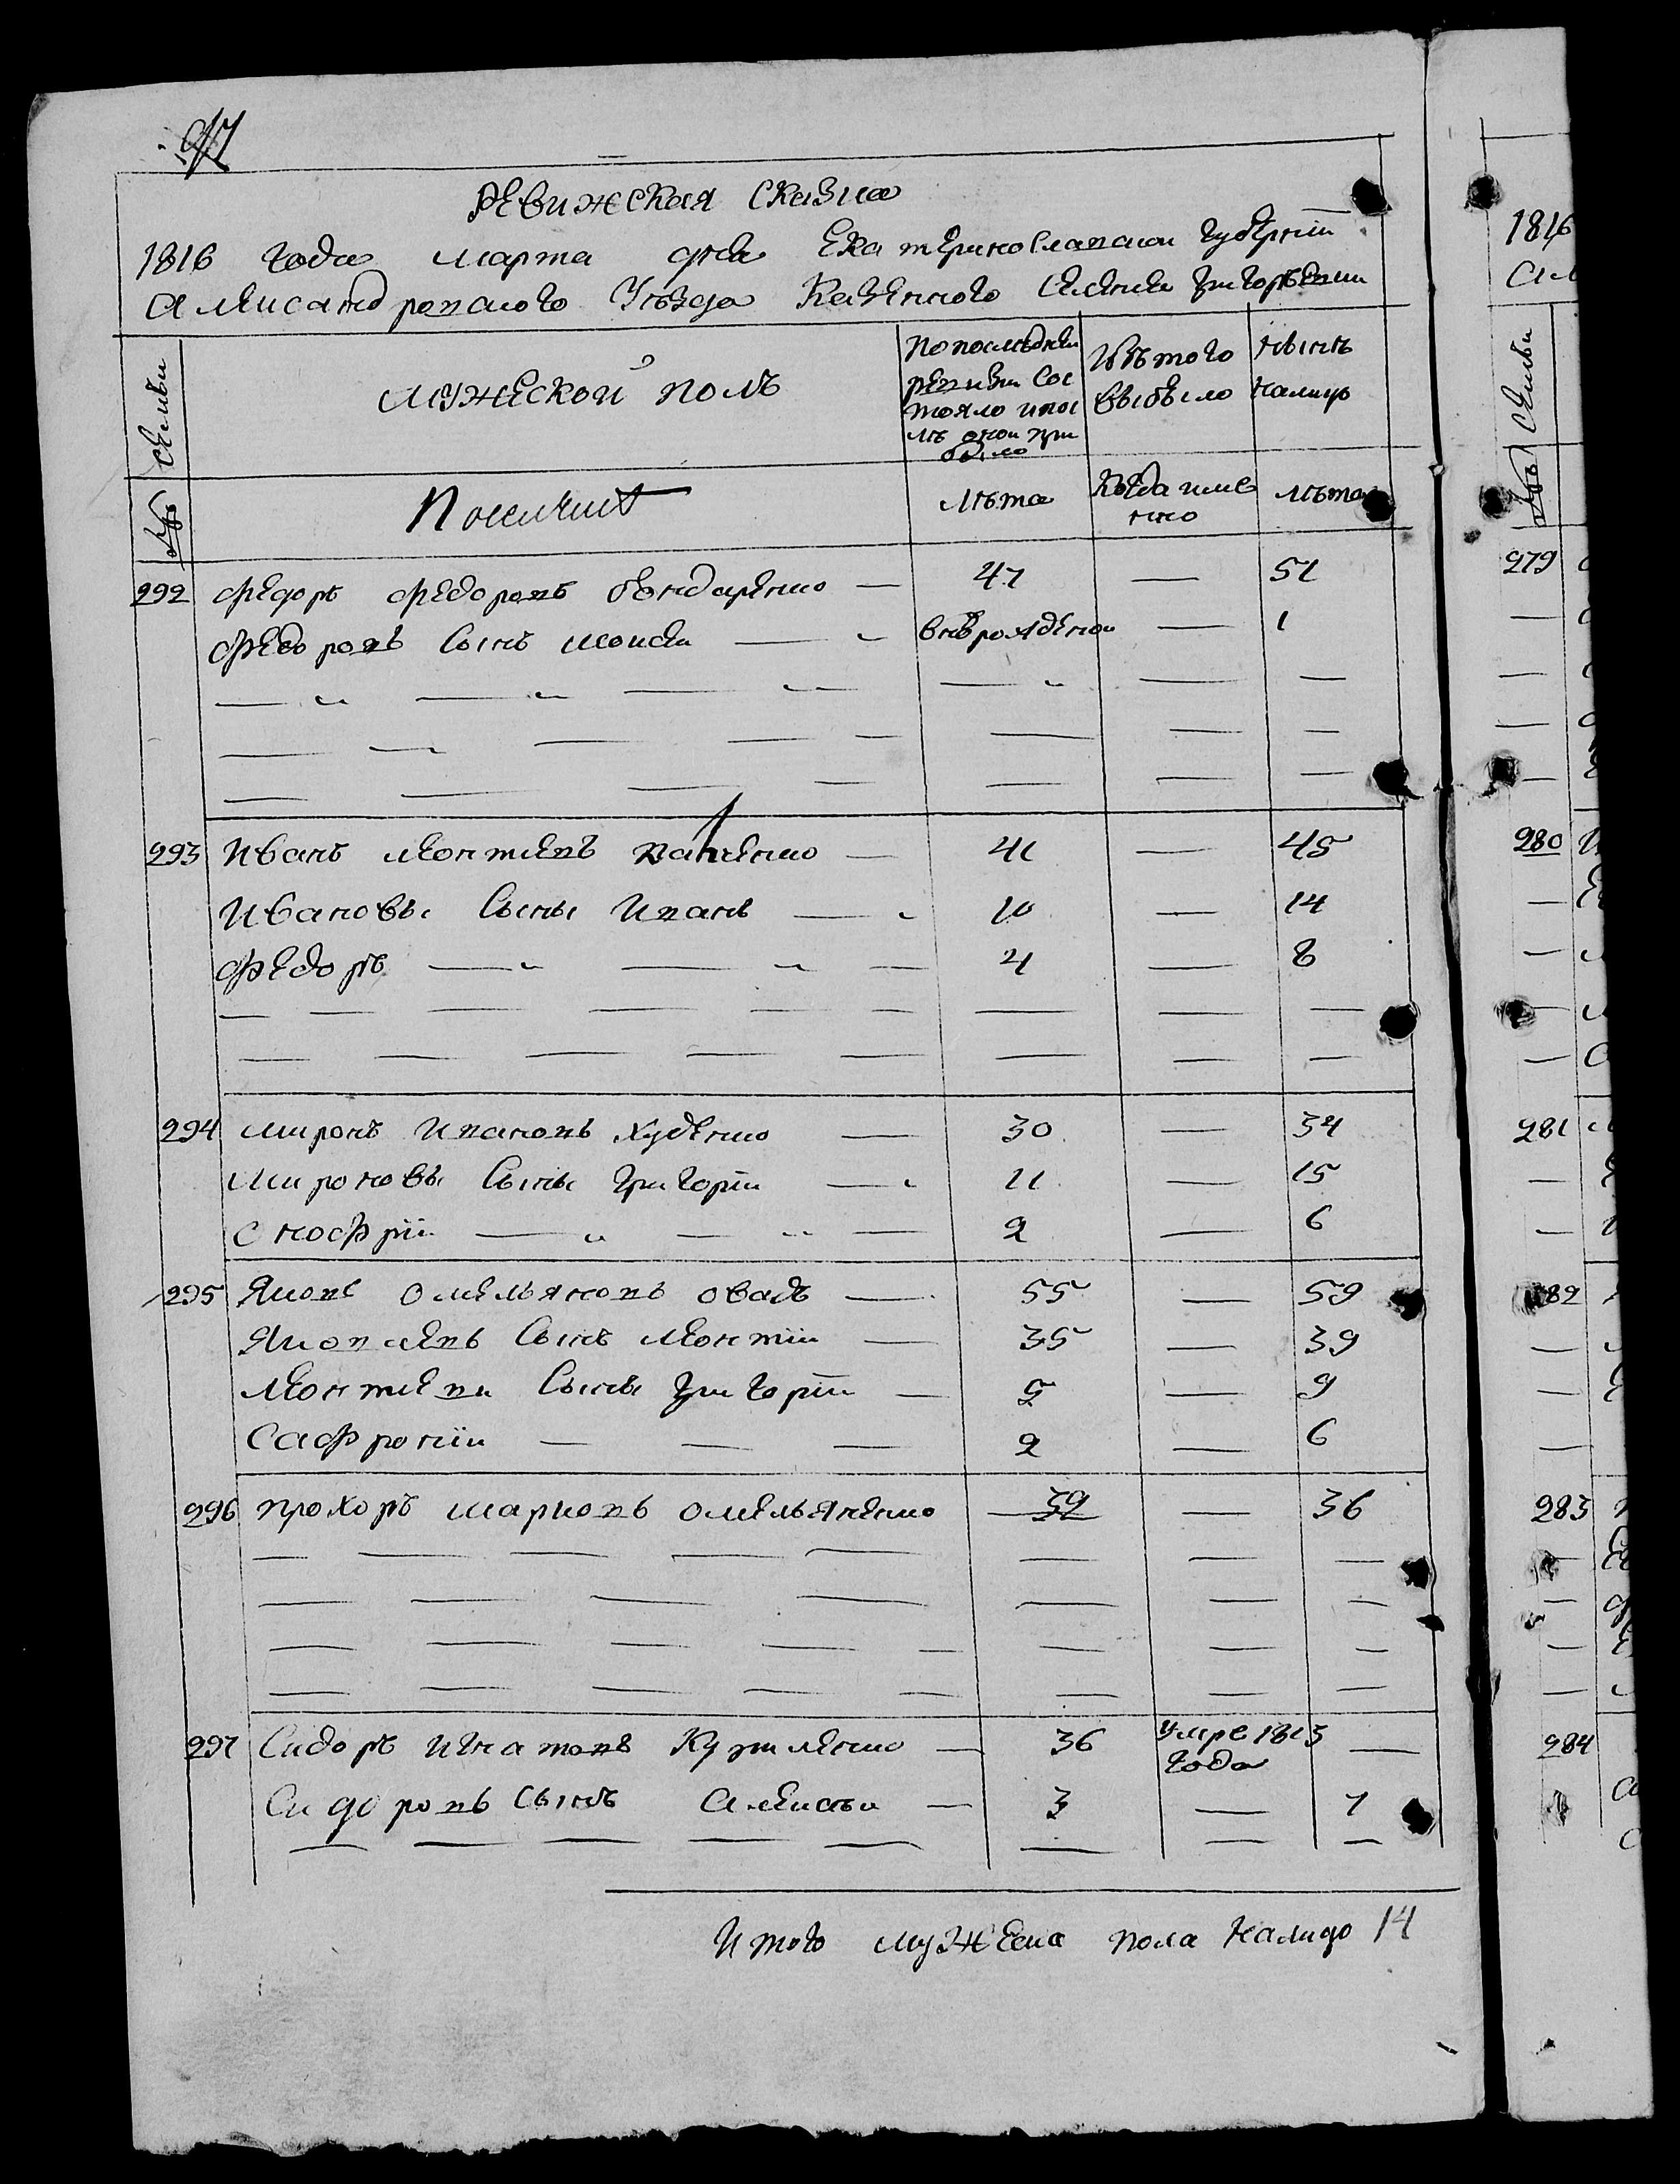 97
Ревижская Сказка
1816 года марта дня Екатеринославской Губернии
Александровского Уезда Казенного Селения Григорьевки
№ Семьи
мужеской полъ
по последней ревизии состояло и после оной прибыло
Изъ того выбыло
ныне налицо
лѣта
Когда имено
лѣта
292 Федоръ Федоровъ бондаренко — 47 — 51
Федоровъ сынъ моисей — вновърожденой — 1
293 Иванъ леонтиевъ панченко — 41 — 45
Ивановы сыны Иванъ — 10 — 14
Федоръ — 4 — 8
294 миронъ Ивановъ худенко — 30 — 34
мироновы сыны Григорiй — 11 — 15
онофрiй — 2 — 6
295 Яковъ омельяновъ овадъ — 55 — 59
Яковлевъ сынъ леонтiй — 35 — 39
леонтиевы сыны Григорiй — 5 — 9
Сафронiй — 2 — 6
296 прохоръ марковъ омельяненко — 32 — 36
297 Сидоръ игнатовъ Куриленко — 36 умре 1813 года —
Сидоровъ сынъ алексѣй — 3 — 7
Итого мужеска пола налицо 14
1816
Ал
№ Семьи
279
280
281
282
283
284